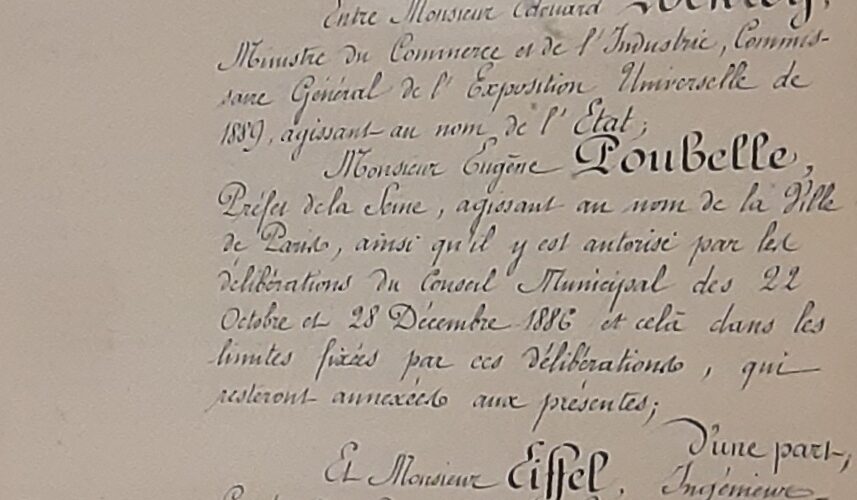 Entre Monsieur Edouard Lockroy,
Ministre du Commerce et de l'Industrie, Commis-
saire Général de l'Exposition Universelle de
1889, agissant au nom de l'Etat;
Monsieur Eugène Poubelle,
Préfet de la Seine, agissant au nom de la Ville
de Paris, ainsi qu'il y est autorisé par les
délibérations du Conseil Municipal des 22
Octobre et 28 Décembre 1886 et celà dans les
limites fixées par ces délibérations, qui
resteront annexées aux présentes;
D'une part,
Et Monsieur Eiffel, Ingénieur